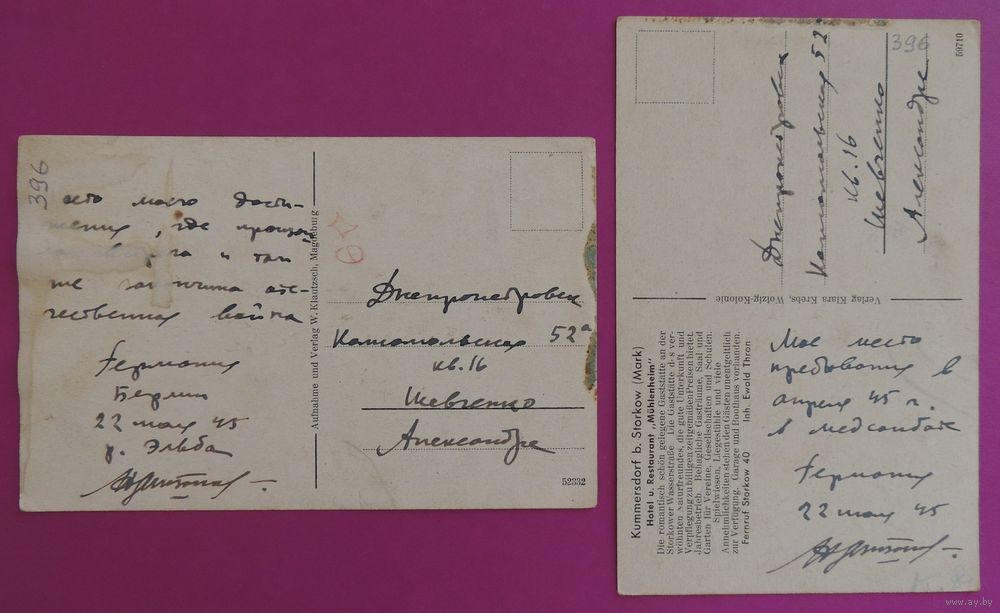 396
место моего дости-
жения, где произо
и там
же закончина оте-
чественная война
Германия
Берлин
22 мая 45
р. Эльба
Aufnahme und Verlag W. Klautzsch, Magdeburg
Днепропетровск
Комсомольская 52а
кв. 16
Шевченко
Александре
52332
396
59710
Днепропетровск
Комсомольская 52
кв. 16
Шевченко
Александре
Verlag Klara Krebs, Wolzig-Kolonie
Kummersdorf b. Storkow (Mark)
Hotel u. Restaurant „Mühlenheim"
Die romantisch schön gelegene Gaststätte an der
Storkower Wasserstraße. Die Gaststätte d-s ver-
wöhnten Naturfreundes, die gute Unterkunft und
Verpflegung zu billigen zeitgemäßen Preisen bietet.
Jahresbetrieb. Behagliche Gasträume, Saal und
Garten für Vereine, Gesellschaften und Schulen.
Spielwiesen, Liegestühle und viele
Annehmlichkeiten stehen den Gästen unentgeltlich
zur Verfügung. Garage und Boothaus vorhanden.
Fernruf Storkow 40 Inh. Ewald Thron
Мое место
пребывания в
апреле 45 г.
в медсанбате
Германия
22 мая 45
www.ay.by